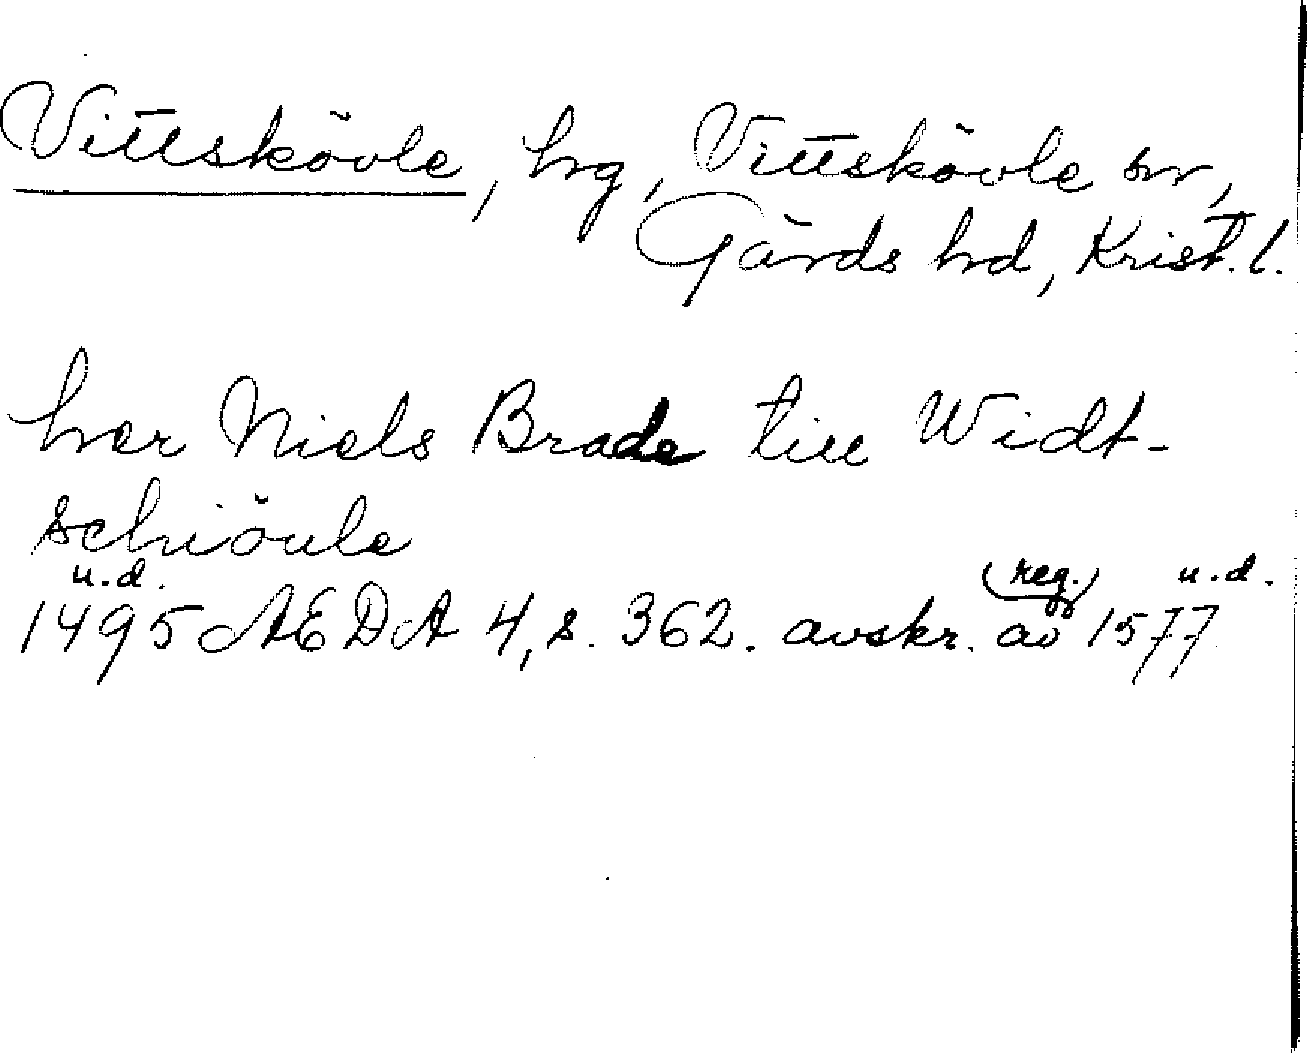 Vittskövle, hg, Vittskövle sn,
Gärds hd, Krist. l.
her Niels Brade till Widt-
schiöule
u.d. (reg.) u.d.
1495 AEDA 4, s. 362. avskr. av 1577